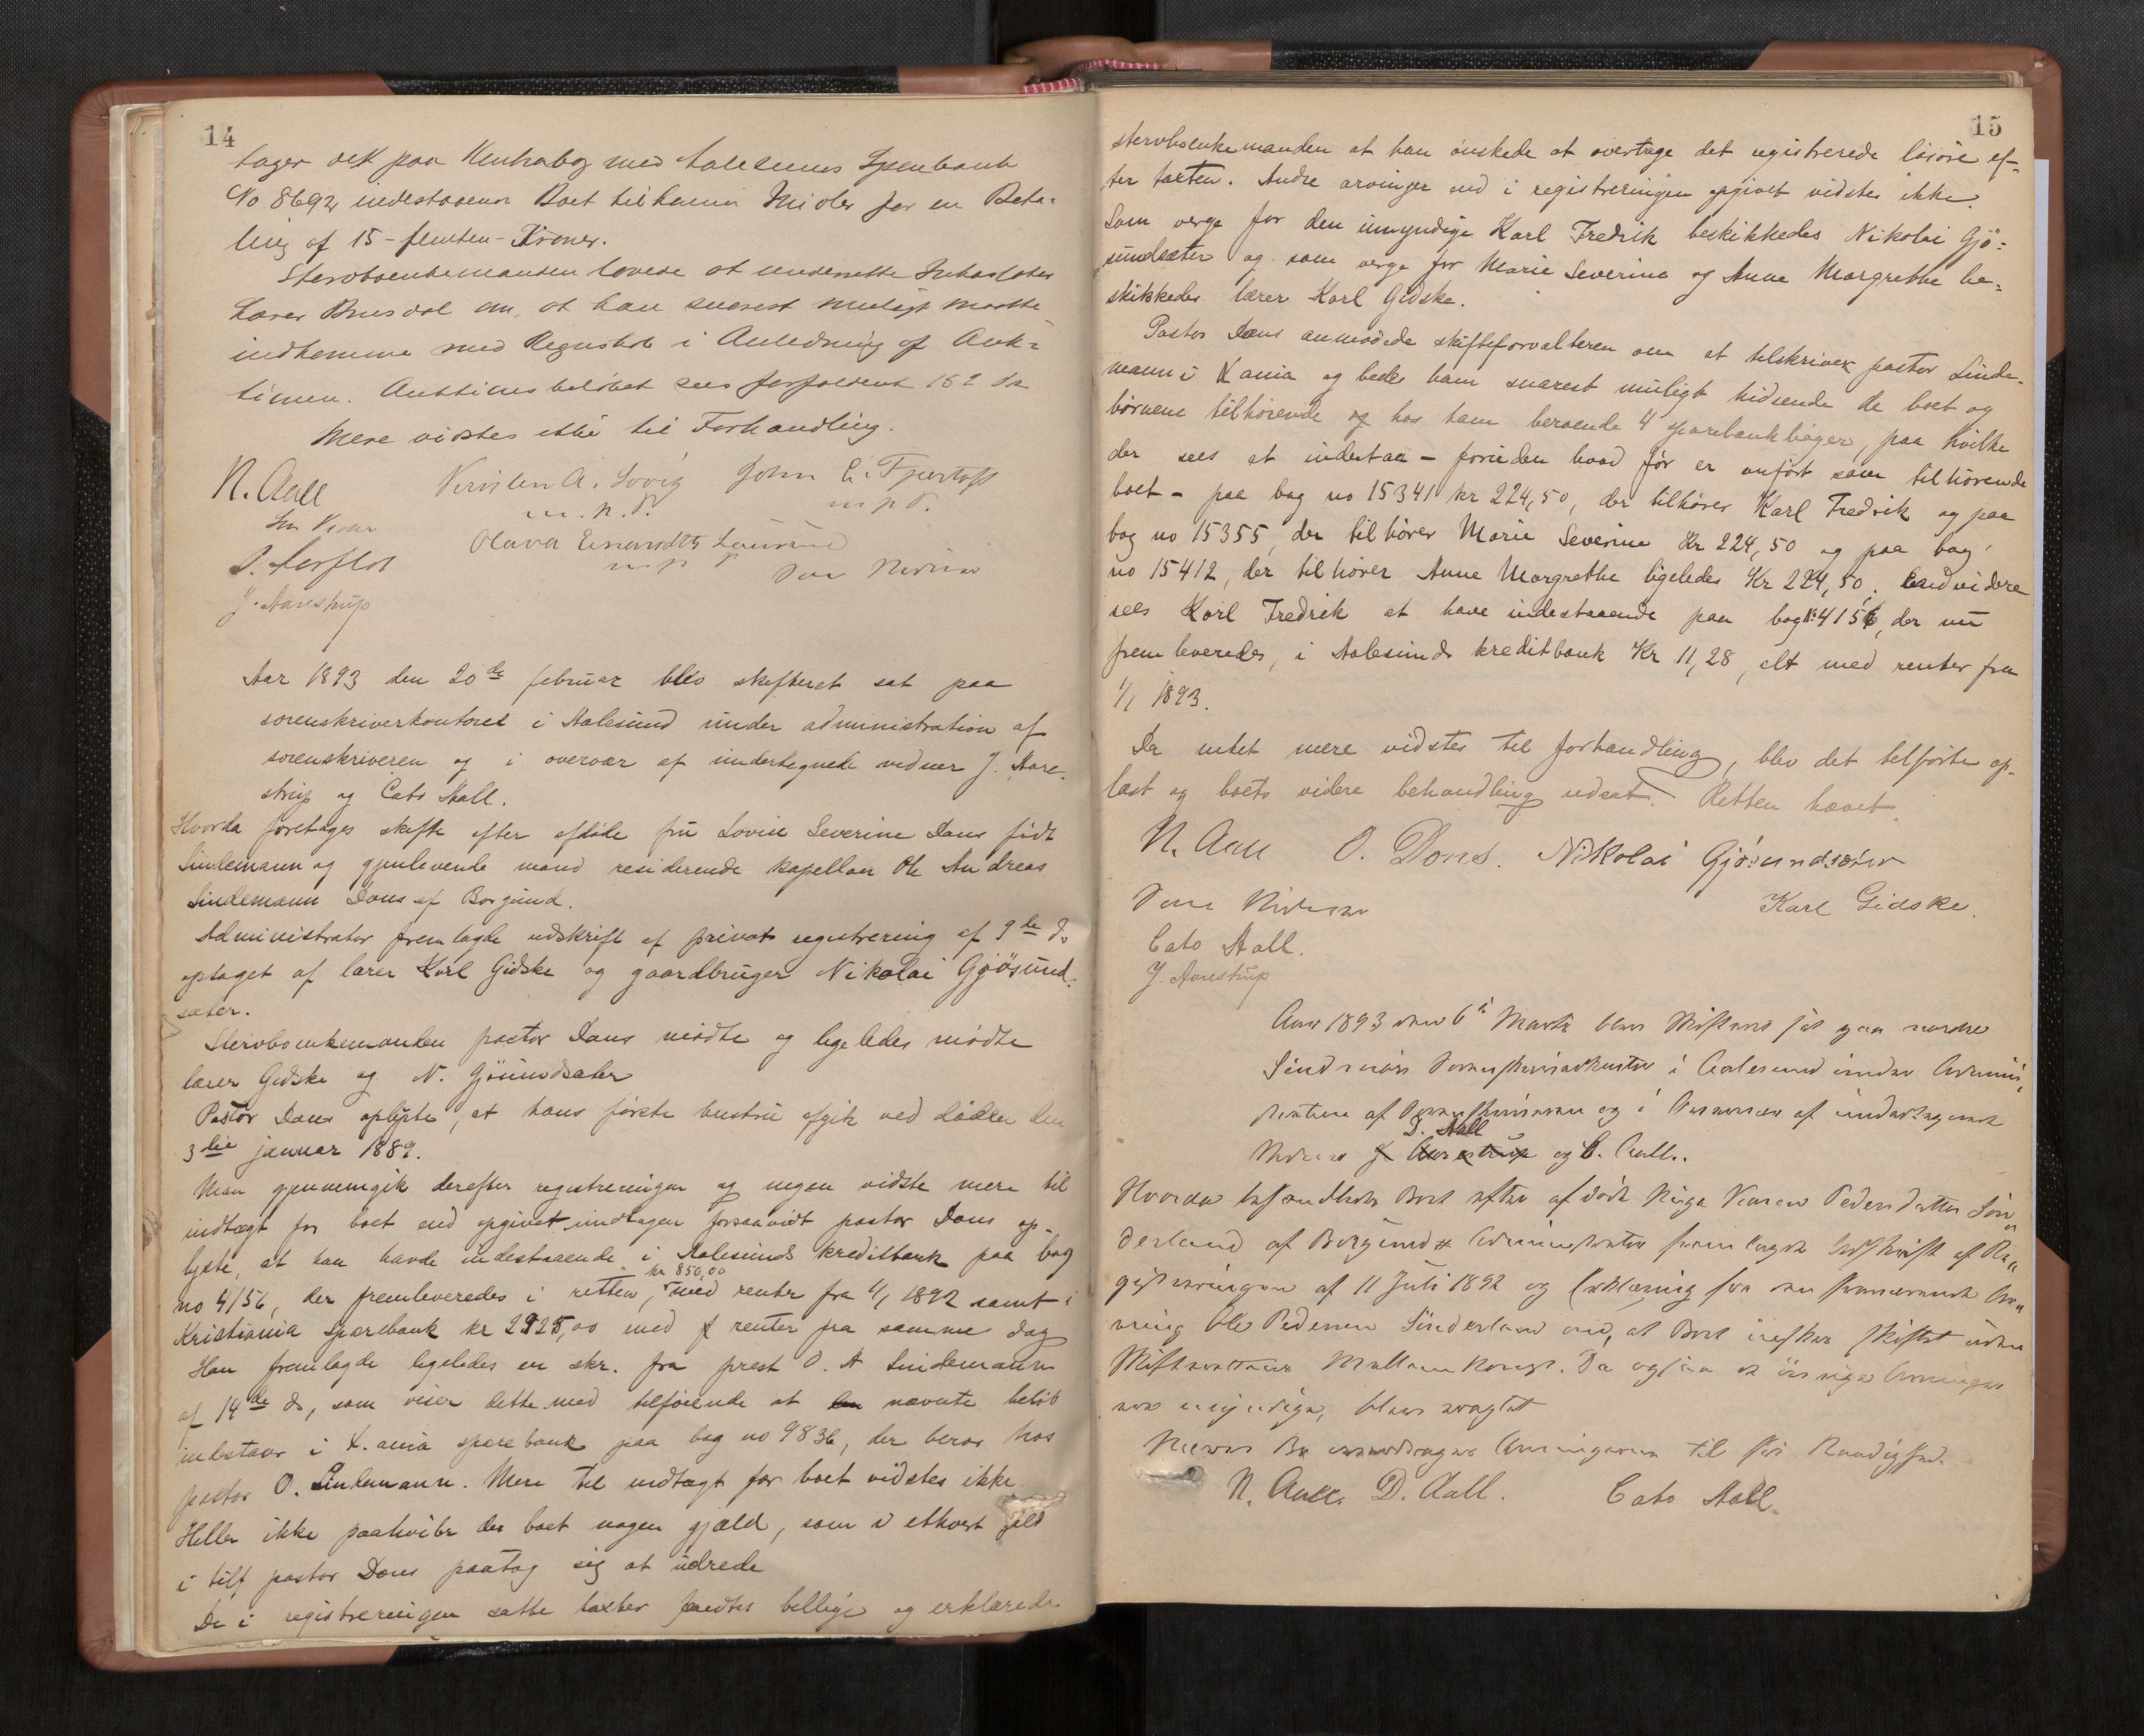 14
tager det paa Kontrabog med Aalesunds Sparebank
No 8692 indestaaende Boet tilhørende Midler for en Beta-
ling af 15 - femten - Kroner.
Stervboenkemanden lovede at underrette Inkassator
Lærer Brusdal om, at han snarest muligt maatte
indkomme med Regnskab i Anledning af Auk-
tionen. Auktionsbeløbet sees forfaldent
Mere vidstes ikke til Forhandling.
N. Aall John E. Fjærtoft
m. p. P. m p P.
Olava
J. Aarestrup
Aar 1893 den 20de februar blev skifteret sat paa
sorenskriverkontoret i Aalesund under administration af
sorenskriveren og i overvær af undertegnede vidner J. Aare-
strup og Cato Aall.
Hvorda foretoges skifte efter afdøde fru Lovise Severine Dons født
Lindemann og gjenlevende mand residerende kapellan Ole Andreas
Lindemann Dons af Borgund.
Administrator fremlagde udskrift af privat registrering af 9de ds
optaget af lærer Karl Gidske og gaardbruger Nikolai Gjøsund-
sæter.
Stervboenkemanden pastor Dons mødte og ligeledes mødte
lærer Gidske og N. Gjøsundsæter
Pastor Dons oplyste, at hans første hustru afgik ved døden den
3die januar 1889.
Man gjennemgik derefter registreringen og ingen vidste mere til
indtægt for boet end opgivet undtagen forsaavidt pastor Dons op-
lyste, at han havde indestaaende i Aalesunds kreditbank paa bog
kr 850,00
no 4156, der fremleveredes i retten, med renter fra 1/1 1892 samt i
Kristiania sparebank kr 2925,00 med renter fra samme dag
Han fremlagde ligeledes en skr. fra prest O. A Lindemann
af 14de ds, som viser dette med tilføiende at nævnte beløb
indestaar i X.ania sparebank paa bog no 9836, der beror hos
pastor O. Lindemann. Mere til indtægt for boet vidstes ikke
Heller ikke paahviler der boet nogen gjæld, som i ethvert fald
i tilf pastor Dons paatog sig at udrede
De i registreringen satte taxter fandtes billige og erklærede
15
stervboenkemanden at han ønskede at overtage det registrerede løsøre ef-
ter taxten. Andre arvinger end i registreringen opgivet vidstes ikke.
Som verge for den umyndige Karl Fredrik beskikkedes Nikolai Gjø-
sundsæter og som verge for Marie Severine og Anne Margrethe be-
skikkedes lærer Karl Gidske.
Pastor Dons anmodede skifteforvalteren om at tilskrive pastor Linde-
mann i Xania og bede ham snarest muligt hidsende de boet og
børnene tilhørende og hos ham beroende 4 sparebankbøger, paa hvilke
der sees at indestaa - foruden hvad før er anført som tilhørende
boet - paa bog no 15341 kr 224,50, der tilhører Karl Fredrik og paa
bog no 15355, der tilhører Marie Severine Kr 224,50 og paa bog
no 15412, der tilhører Anne Margrethe ligeledes Kr 224,50. Endvidere
sees Karl Fredrik at have indestaaende paa bog No 4156, der nu
fremleveredes, i Aalesunds kreditbank Kr 11,28, alt med renter fra
1/1 1893.
Da intet mere vidstes til forhandling, blev det tilførte op-
læst og boets videre behandling udsat. Retten hævet.
N. Aall O. Dons. Nikolai Gjøsundsæter
Karl Gidske.
Cato Aall.
J. Aarestrup
Aar 1893 den 6te Marts blev Skifteret sat paa nordre
Søndmørs Sorenskriverkontor i Aalesund under Admini-
stration af Sorenskriveren og i Overvær af undertegnede
D. Aall
Vidner J Aarestrup og C. Aall.
Hvorda behandledes Boet efter afdøde Pige Karen Pedersdatter Sun-
derland af Borgund Administrator fremlagde Udskrift af Re-
gistreringen af 11 Juli 1892 og Erklæring fra den fraværende Ar-
ving Ole Pedersen Sunderland om, at Boet ønskes skiftet uden
Skifterettens Mellemkomst. Da ogsaa de øvrige Arvinger
ere myndige, blev eragtet
Nærv. Bo overdrages Arvingerne til fri Raadighed.
N. Aall. D. Aall. Cato Aall.